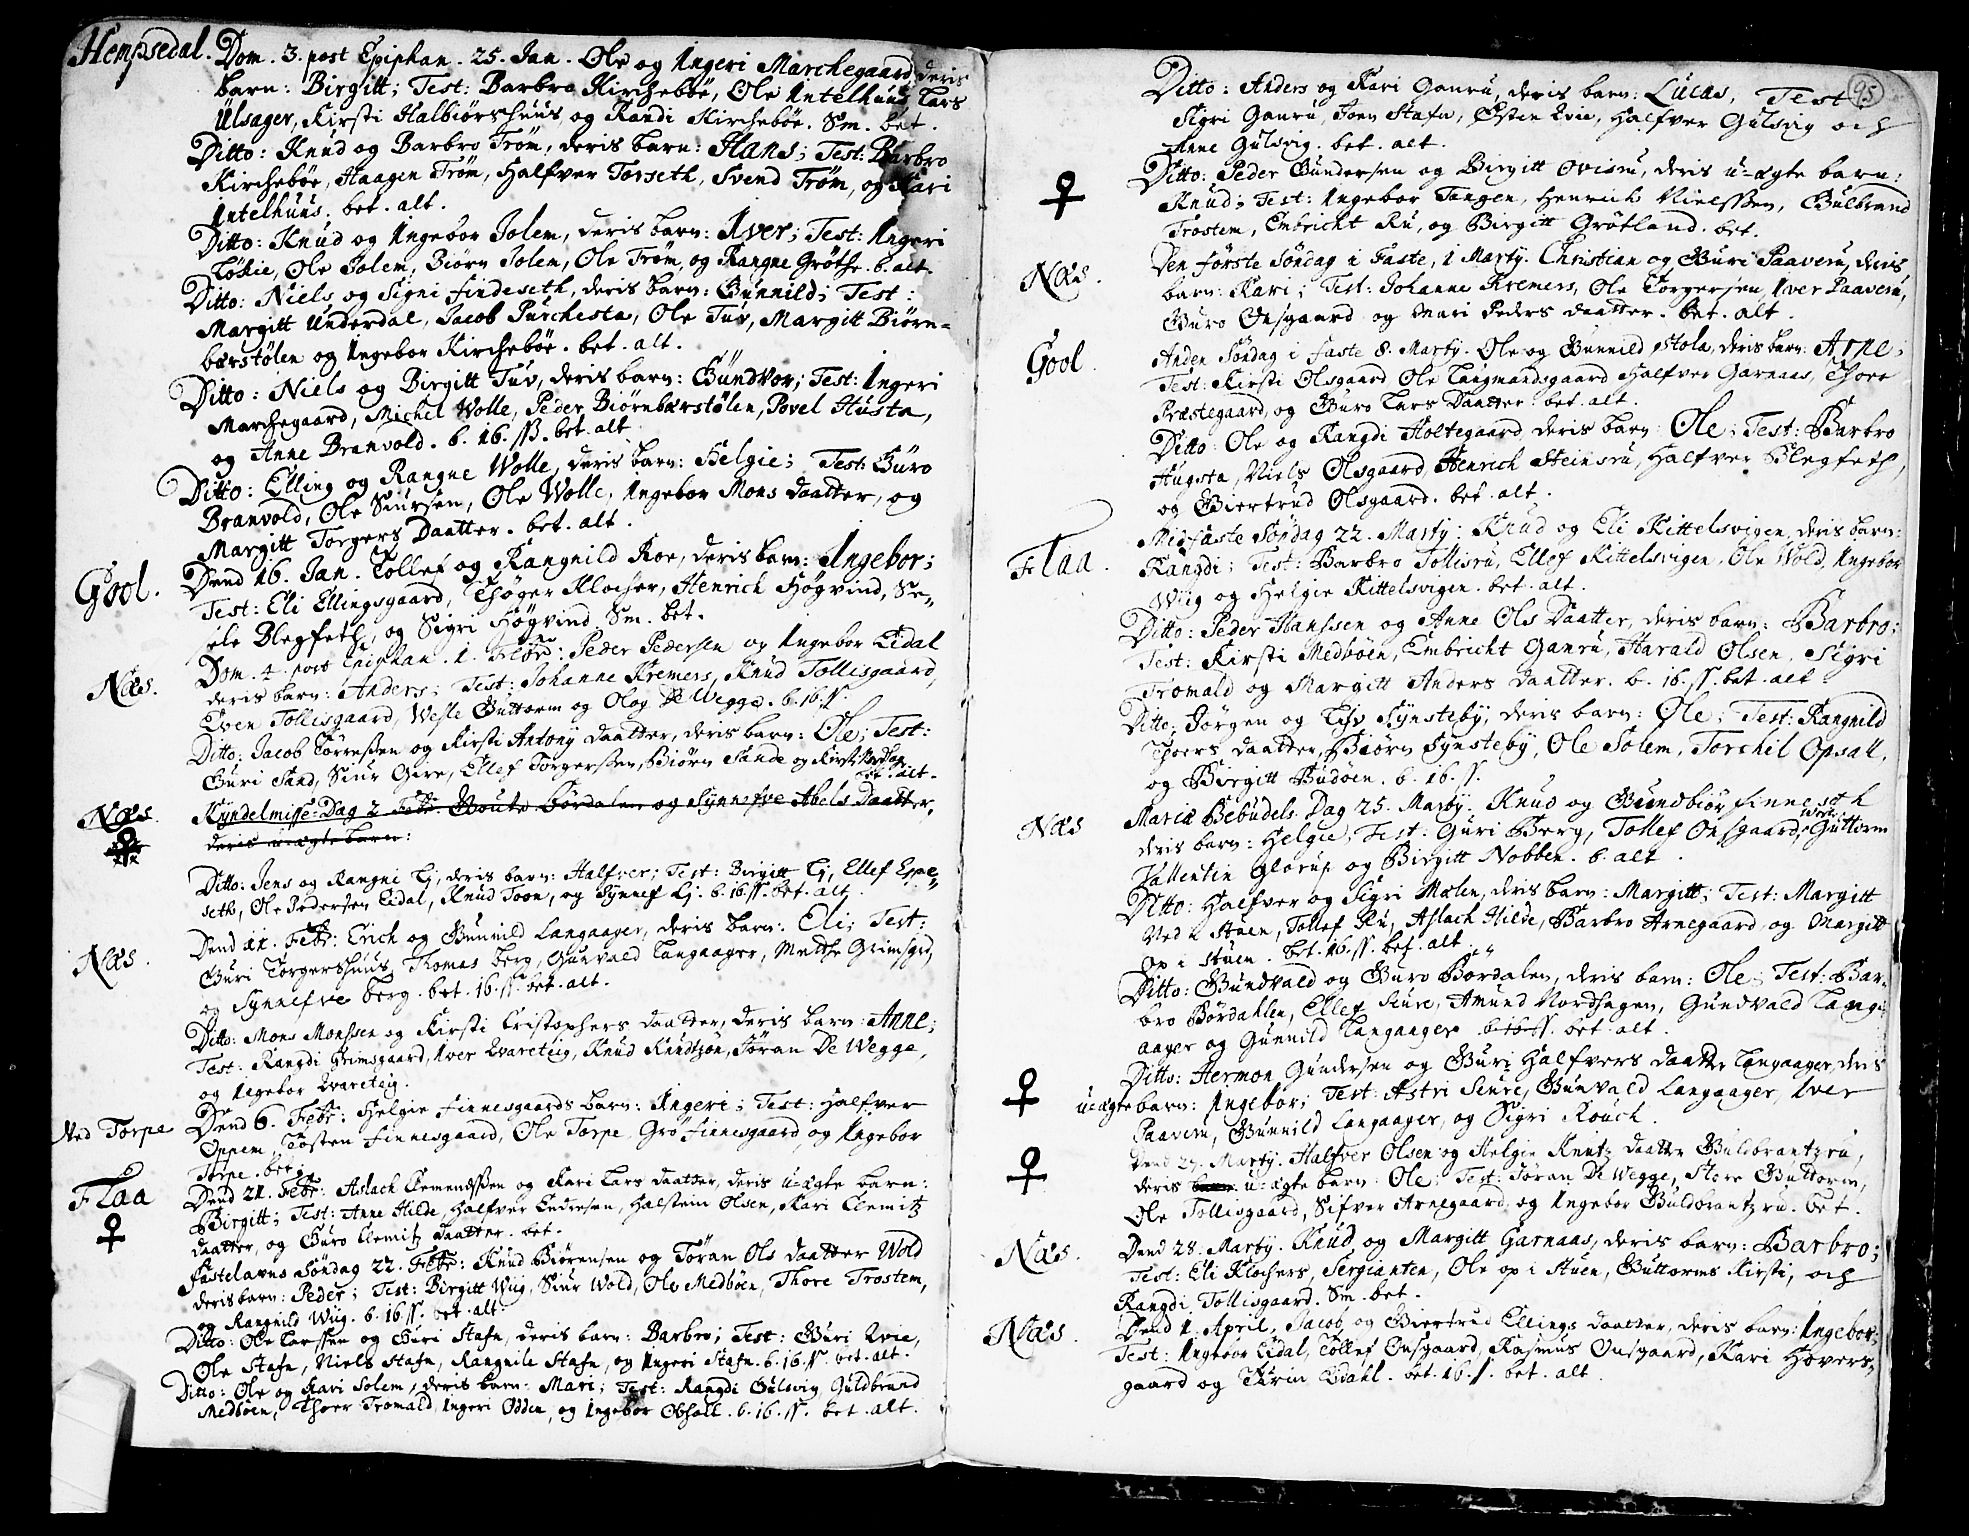 Hempsedal. Dom. 3. post Epiphan. 25. Jan. Ole og Ingeri Marchegaard deris
barn: Birgitt; Test: Barbro Kirchebøe, Ole Intelhuus Lars
Ulsager, Kirsti Halbiørshuus og Randi Kirchebøe. Sm. bet.
Ditto: Knud og Barbro Trøm, deris barn: Hans; Test: Barbro
Kirchebøe, Haagen Trøm, Halfver Torseth, Svend Trøm, og Kari
Intelhuus. bet. alt.
Ditto: Knud og Ingebor Jolem, deris barn: Iver; Test: Ingeri
Løkie, Ole Jolem, Biørn Jolem, Ole Trøm, og Rangne Grøthe. b. alt.
Ditto: Niels og Signi findeseth, deris barn: Gunnild; Test:
Margitt Underdal, Jacob Purchesta, Ole Tuv, Margitt Biørn=
bærstølen og Ingebor Kirchebøe. bet. alt.
Ditto: Niels og Birgitt Tuv, deris barn: Gundvor; Test: Ingeri
Marchegaard, Michel Wolle, Peder Biørnbærstølen, Povel Husta,
og Anne Branvold. b. 16. ß. bet. alt
Ditto: Elling og Rangne Wolle, deris barn: Helgie; Test: Guro
Branvold, Ole Siursen, Ole Wolle, Ingebor Mons daatter, og
Margitt Torgers Daatter. bet. alt.
Gool. Dend 16. Jan. Tollef og Rangnild Roe, deris barn: Ingebor;
Test: Eli Ellingsgaard, Thøger Klocher, Henrich Høgvind, Se=
sele Blegfeth, og Sigri Høgvind. Sm. bet.
Næs. Dom. 4. post Epiphan. 1. Febr: Peder Pedersen og Ingebor Eidal
deris barn: Anders; Test: Johanne Kremers, Knud Tollisgaard,
Even Tollisgaard, Wesle Guttorm og Oloy De Wegge. b. 16. ß
Ditto: Jacob Tørressen og Kirsti Antony daatter, deris barn: Ole; Test:
Guri Sand, Siur Gire, Ellef Torgerssen, Biørn Sande og Kirsti
bet. alt.
Næs. Kyndelmisse Dag 2 Febr. Børdalen og Synnefve Abels Daatter,
deris u=ægte barn:
Ditto: Jens og Rangni Lj, deris barn: Halfver; Test: Birgitt Lj, Ellef Espe=
seth, Ole Pedersen Eidal, Knud Toon, og Synnef Lj. b. 16 ß. bet. alt.
Næs. Dend 11. Febr: Erich og Gunnild Langaager, deris barn: Eli; Test:
Guri Torgershuus, Thomas berg, Gunvald Langaager, Metthe Grimsgrd,
og Synnefve berg. bet. 16. ß. bet. alt.
Ditto: Mons Monssen og Kirsti Cristophers daatter, deris barn: Anne;
Test: Rangdi Grimsgaard, Iver Qvareteig, Knud Knudtzøn, Jøran De Wegge,
og Ingebor Qvareteig.
Ved Torpe Dend 6. Febr: Helgie Finnesgaards barn: Ingeri; Test: Halfver
Oppem, Tosten Finnesgaard, Ole Torpe, Gro Finnesgaard, og Ingebor
Torpe. bet.
Flaa Dend 21. Febr: Aslach Clemendssen og Kari Lars daatter, deris u=ægte barn:
Birgitt; Test: Anne Hilde, Halfver Endresen, Halstein Olsen, Kari Clemitz
daatter, og Guro Clemitz daatter. bet.
Fastelavns Søndag 22. Febr: Knud Biørensen og Jøran Ols daatter Wold
deris barn: Peder; Test: Birgitt Wiig, Siur Wold, Ole Medbøen, Thore Trostem,
og Rangnild Wiig. b. 16 ß. bet. alt
Ditto: Ole Larssen og Guri Stafn, deris barn: Barbro; Test: Guri Qvie,
Ole Stafn, Niels Stafn, Rangnile Stafn, og Ingeri Stafn. b. 16. ß. bet. alt.
Ditto: Ole og Kari Solem, deris barn: Mari; Test: Rangdi Gulsvig, Guldbrand
Medbøen, Thoer Tromald, Ingeri Odden, og Ingebor Obsall. b. 16. ß. bet. alt.
95
Ditto: Anders og Kari Ganru, deris barn: Lucas, Test
Sigri Ganru, Joen Stafn, Østen Qvie, Halfver Gulsvig och
Anne Gulsvig. bet. alt.
Ditto: Peder Gundersen og Birgitt Ovisru, deris u=ægte barn:
Knud; Test: Ingebor Tangen, Henrich Nielssen, Gulbrand
Trostem, Embricht Ru, og Birgitt Grøtland. bet.
Næs. Den første Søndag i Faste, 1 Marty. Christian og Guri Paaveru, deris
barn: Kari; Test: Johanne Kremers, Ole Torgersen, Iver Paaveru,
Guro Onsgaard og Mari Peders daatter. bet. alt.
Gool. Anden Søndag i faste 8. Marty. Ole og Gunnild Stola, deris barn: Arne;
Test: Kirsti Olsgaard, Ole Laugmandsgaard, Halfver Garnaas, Thore
Præstegaard, og Guro Lars Daatter. bet. alt.
Ditto: Ole og Rangdi Holtegaard, deris barn: Ole; Test: Barbro
Hugsta, Niels Olsgaard, Henrich Steinsru, Halfver Blegfeth,
og Giertrud Olsgaard. bet. alt.
Flaa. Midfaste Søndag 22. Marty: Knud og Eli Kittelsvigen, deris barn:
Rangdi; Test: Barbro Tollisru, Ellef Kittelsvigen, Ole Wold, Ingebor
Wiig og Helgie Kittelsvigen. bet. alt.
Ditto: Peder Hanssen og Anne Ols Daatter, deris barn: Barbro;
Test: Kirsti Medbøen, Embricht Ganru, Harald Olsen, Sigri
Tromald og Margitt Anders daatter. b. 16. ß. bet. alt
Ditto: Jørgen og Liv Synsteby, deris barn: Ole; Test: Rangnild
Thoers daatter, Biørn Synsteby, Ole Solem, Torchil Opsall,
og Birgitt Budøen. b. 16. ß.
Næs Mariæ Bebudels Dag 25. Marty. Knud og Gundbiør finneseth
deris barn: Helgie; Test: Guri Berg, Tollef Onsgaard, Wesle Guttorm
Vallentin Glorup og Birgitt Nobben. b. alt.
Ditto: Halfver og Sigri Mølen, deris barn: Margitt; Test: Margitt
Ved i Stuen, Tollef Ru, Aslach Hilde, Barbro Arnegaard og Margitt
Op i Stuen. bet. 16. ß. bet. alt
Ditto: Gundvald og Guro Børdalen, deris barn: Ole; Test: Bar=
bro Børdahlen, Ellef Siure, Amund Nordhagen, Gundvald Lang=
aager og Gunnild Langaager. b. 16 ß. bet. alt.
Ditto: Hermon Gundersen og Guri Halfvers daatter Langaager, deris
u=ægte barn: Ingebor; Test: Astri Siure, Gunvald Langaager, Iver
Paaveru, Gunnild Langaager, og Sigri Rouch.
Dend 27. Marty. Halfver Olsen og Helgie Knutz daatter Guldbrantzru,
deris barn u=ægte barn: Ole; Test: Jøran De Wegge, Store Guttorm,
Ole Tollisgaard, Sifver Arnegaard, og Ingebor Guldbrantzru. bet.
Næs. Dend 28. Marty. Knud og Margitt Garnaas, deris barn: Barbro;
Test: Eli Klochers, Sergianten, Ole op i Stuen, Guttorms Kirsti, och
Rangdi Tollisgaard. Sm. bet.
Næs. Dend 1. April, Jacob og Giertrud Ellings daatter, deris barn: Ingebor;
Test: Ingebor Eidal, Tollef Onsgaard, Rasmus Onsgaard, Kari Hovers=
gaard og Thrin Eidahl. bet. 16. ß. bet. alt.